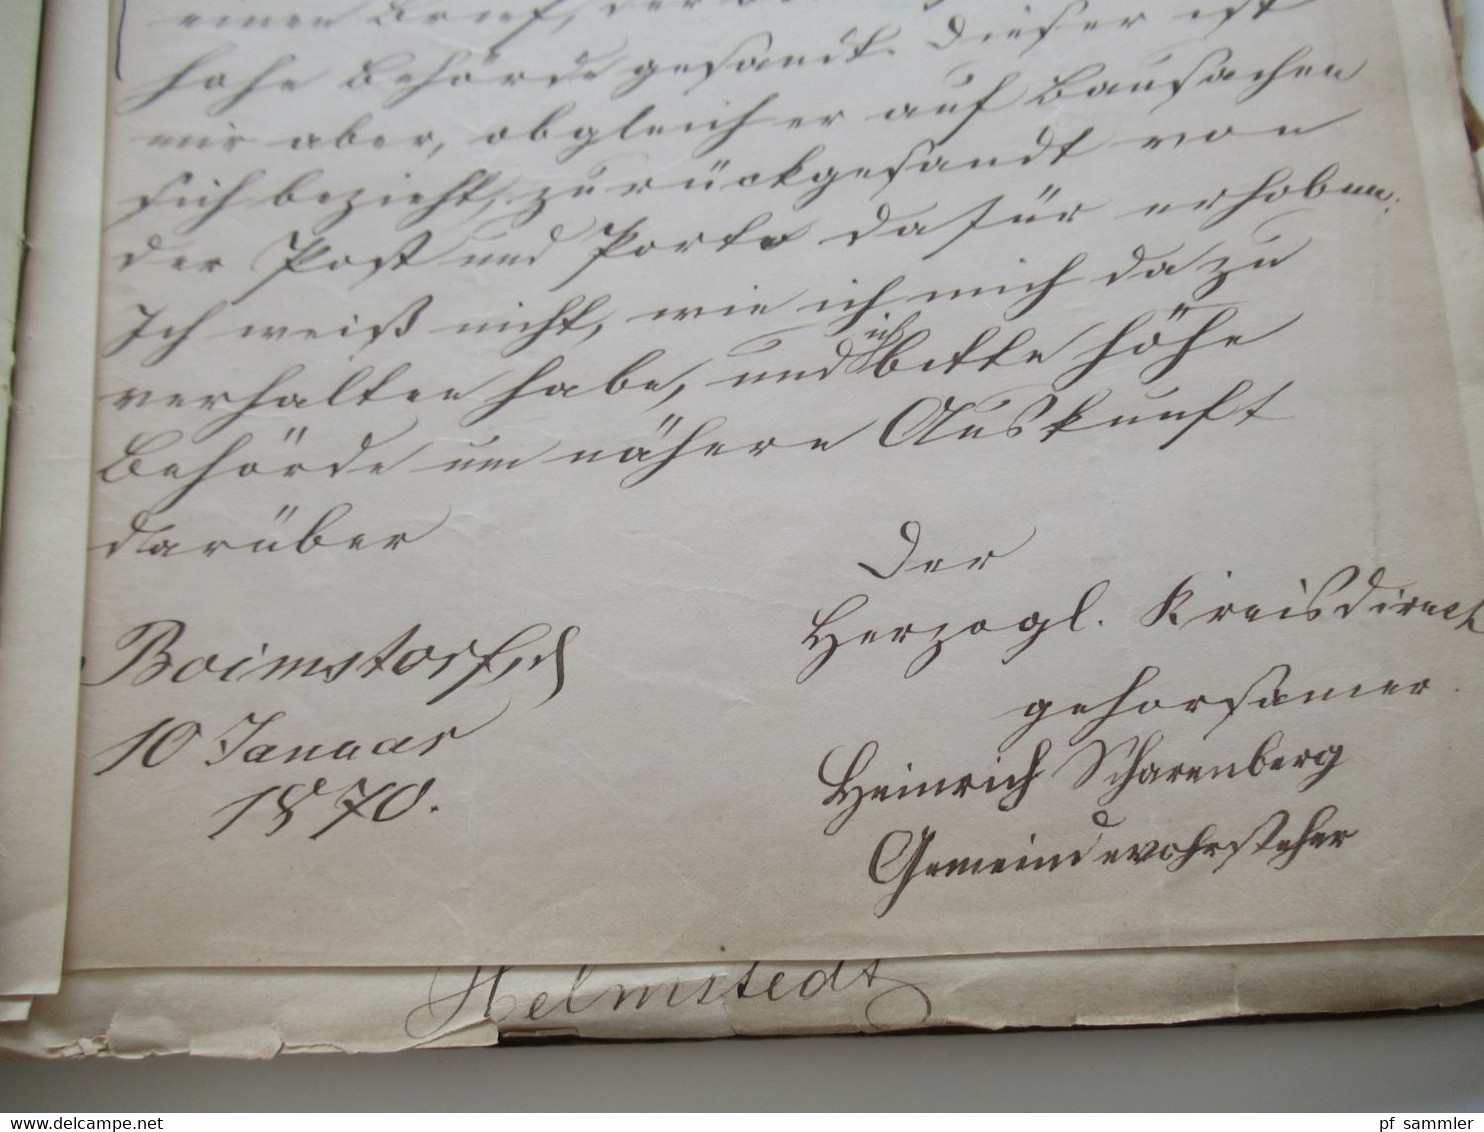 einen Brief, der
hohe Behörde gesandt. Dieser ist
mir aber, obgleich er auf Bausachen
sich bezieht, zurückgesandt von
der Post und Porto dafür erhoben.
Ich weiß nicht, wie ich mich dazu
verhalten habe, und ich bitte höhe
Behörde um nähere Auskunft
darüber
Der
Herzogl. Kreisdirect
Boimstorf, d
gehorsamer
10 Januar
Heinrich Scharenberg
1870.
Gemeindevohrsteher
Helmstedt
www.delcampe.net
pf_sammler